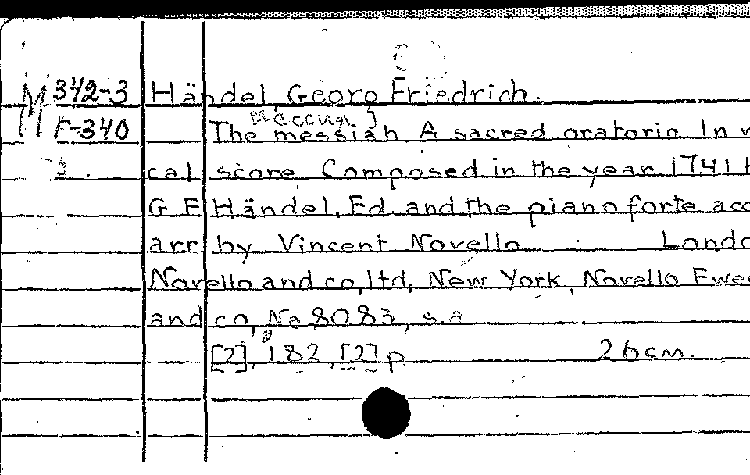 M 342-3 Händel, Georg Friedrich.
F-340 [Мессия.]
The messiah. A sacred oratorio In v
cal score Composed in the year 1741 b
G F Händel, Ed. and the piano forte acc
arr by Vincent Novello. Londo
Novello and co, ltd, New York, Novello Ewe
and co, No 8083, s.a
[2], 182, [2] p 26cm.